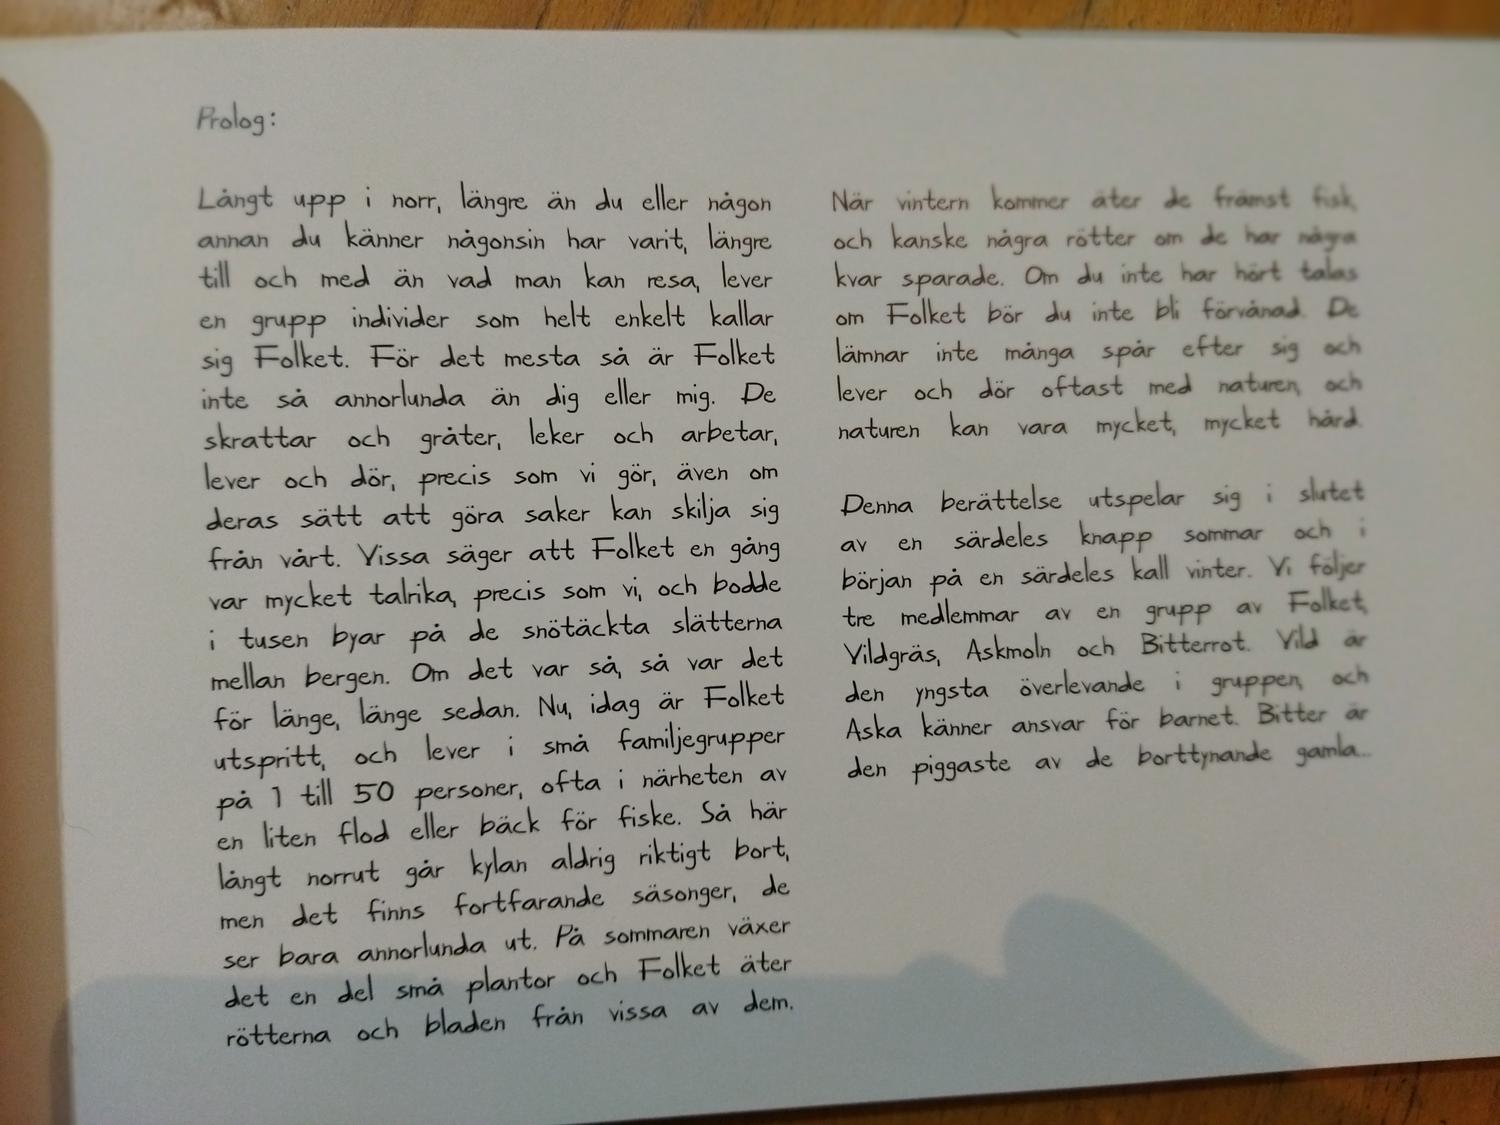 Prolog:
Långt upp i norr, längre än du eller någon
annan du känner någonsin har varit, längre
till och med än vad man kan resa, lever
en grupp individer som helt enkelt kallar
sig Folket. För det mesta så är Folket
inte så annorlunda än dig eller mig. De
skrattar och gråter, leker och arbetar,
lever och dör, precis som vi gör, även om
deras sätt att göra saker kan skilja sig
från vårt. Vissa säger att Folket en gång
var mycket talrika, precis som vi, och bodde
i tusen byar på de snötäckta slätterna
mellan bergen. Om det var så, så var det
för länge, länge sedan. Nu, idag är Folket
utspritt, och lever i små familjegrupper
på 1 till 50 personer, ofta i närheten av
en liten flod eller bäck för fiske. Så här
långt norrut går kylan aldrig riktigt bort,
men det finns fortfarande säsonger, de
ser bara annorlunda ut. På sommaren växer
det en del små plantor och Folket äter
rötterna och bladen från vissa av dem.
När vintern kommer äter de främst fisk,
och kanske några rötter om de har några
kvar sparade. Om du inte har hört talas
om Folket bör du inte bli förvånad. De
lämnar inte många spår efter sig och
lever och dör oftast med naturen, och
naturen kan vara mycket, mycket hård.
Denna berättelse utspelar sig i slutet
av en särdeles knapp sommar och i
början på en särdeles kall vinter. Vi följer
tre medlemmar av en grupp av Folket,
Vildgräs, Askmoln och Bitterrot. Vild är
den yngsta överlevande i gruppen, och
Aska känner ansvar för barnet. Bitter är
den piggaste av de borttynande gamla...